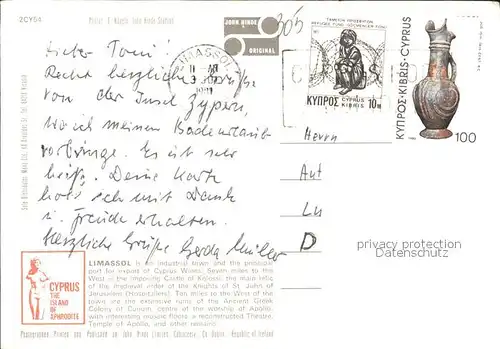 2CY54
JOHN HINDE
ORIGINAL
305
LIMASSOL
ΚΥΠΡΟΣ
CYPRUS
KIBRIS
10
ΚΥΠΡΟΣ·KIBRIS·CYPRUS
100
Lieber Toni!
Recht herzliche Grüße
von der Insel Zypern,
wo ich meinen Badeurlaub
verbringe. Es ist sehr
heiß. Deine Karte
hab ich mit Dank
u. Freude erhalten.
Herzliche Grüße Gerda
Herrn
D
privacy protection
Datenschutz
CYPRUS
THE
ISLAND
OF
APHRODITE
LIMASSOL is an industrial town and the principal
port for export of Cyprus Wines. Seven miles to the
West is the imposing Castle of Kolossi, the main relic
of the medieval order of the Knights of St. John of
Jerusalem (Hospitallers). Ten miles to the West of the
town are the extensive ruins of the Ancient Greek
Colony of Curium, centre of the worship of Apollo,
with interesting mosaic floors, a reconstructed Theatre,
Temple of Apollo, and other remains.
Photographed, Printed and Published by John Hinde Limited, Cabinteely, Co Dublin, Republic of Ireland